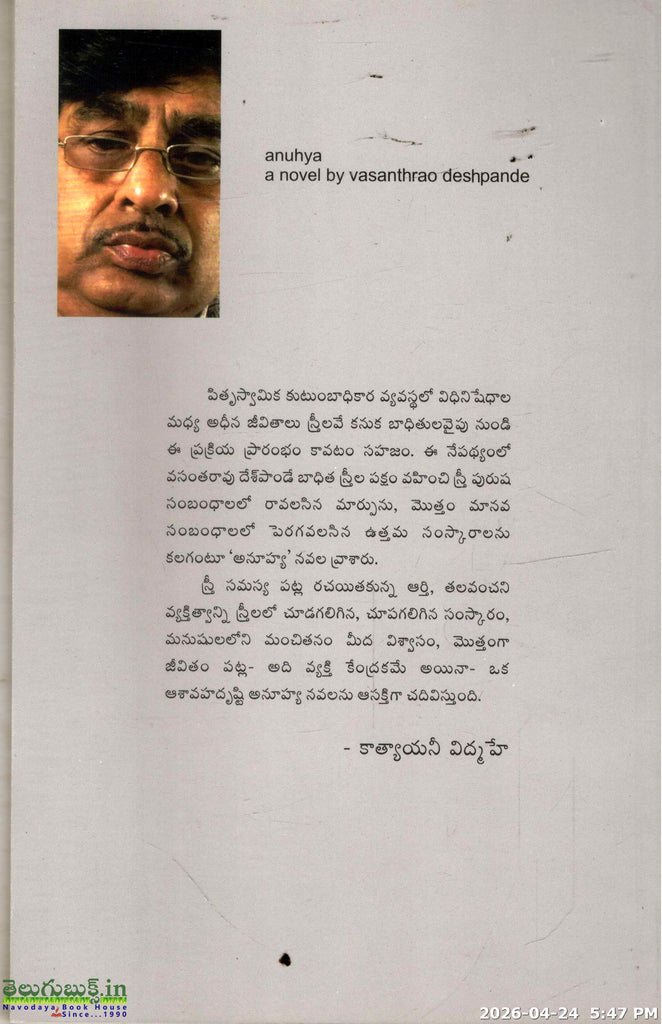 anuhya
a novel by vasanthrao deshpande
పితృస్వామిక కుటుంబాధికార వ్యవస్థలో విధినిషేధాల
మధ్య అధీన జీవితాలు స్త్రీలవే కనుక బాధితులవైపు నుండి
ఈ ప్రక్రియ ప్రారంభం కావటం సహజం. ఈ నేపథ్యంలో
వసంతరావు దేశ్‌పాండే బాధిత స్త్రీల పక్షం వహించి స్త్రీ పురుష
సంబంధాలలో రావలసిన మార్పును, మొత్తం మానవ
సంబంధాలలో పెరగవలసిన ఉత్తమ సంస్కారాలను
కలగంటూ ‘అనూహ్య’ నవల వ్రాశారు.
స్త్రీ సమస్య పట్ల రచయితకున్న ఆర్తి, తలవంచని
వ్యక్తిత్వాన్ని స్త్రీలలో చూడగలిగిన, చూపగలిగిన సంస్కారం,
మనుషులలోని మంచితనం మీద విశ్వాసం, మొత్తంగా
జీవితం పట్ల- అది వ్యక్తి కేంద్రకమే అయినా- ఒక
ఆశావహదృష్టి అనూహ్య నవలను ఆసక్తిగా చదివిస్తుంది.
- కాత్యాయనీ విద్మహే
తెలుగుబుక్స్.in
Navodaya Book House
Since...1990
2026-04-24 5:47 PM